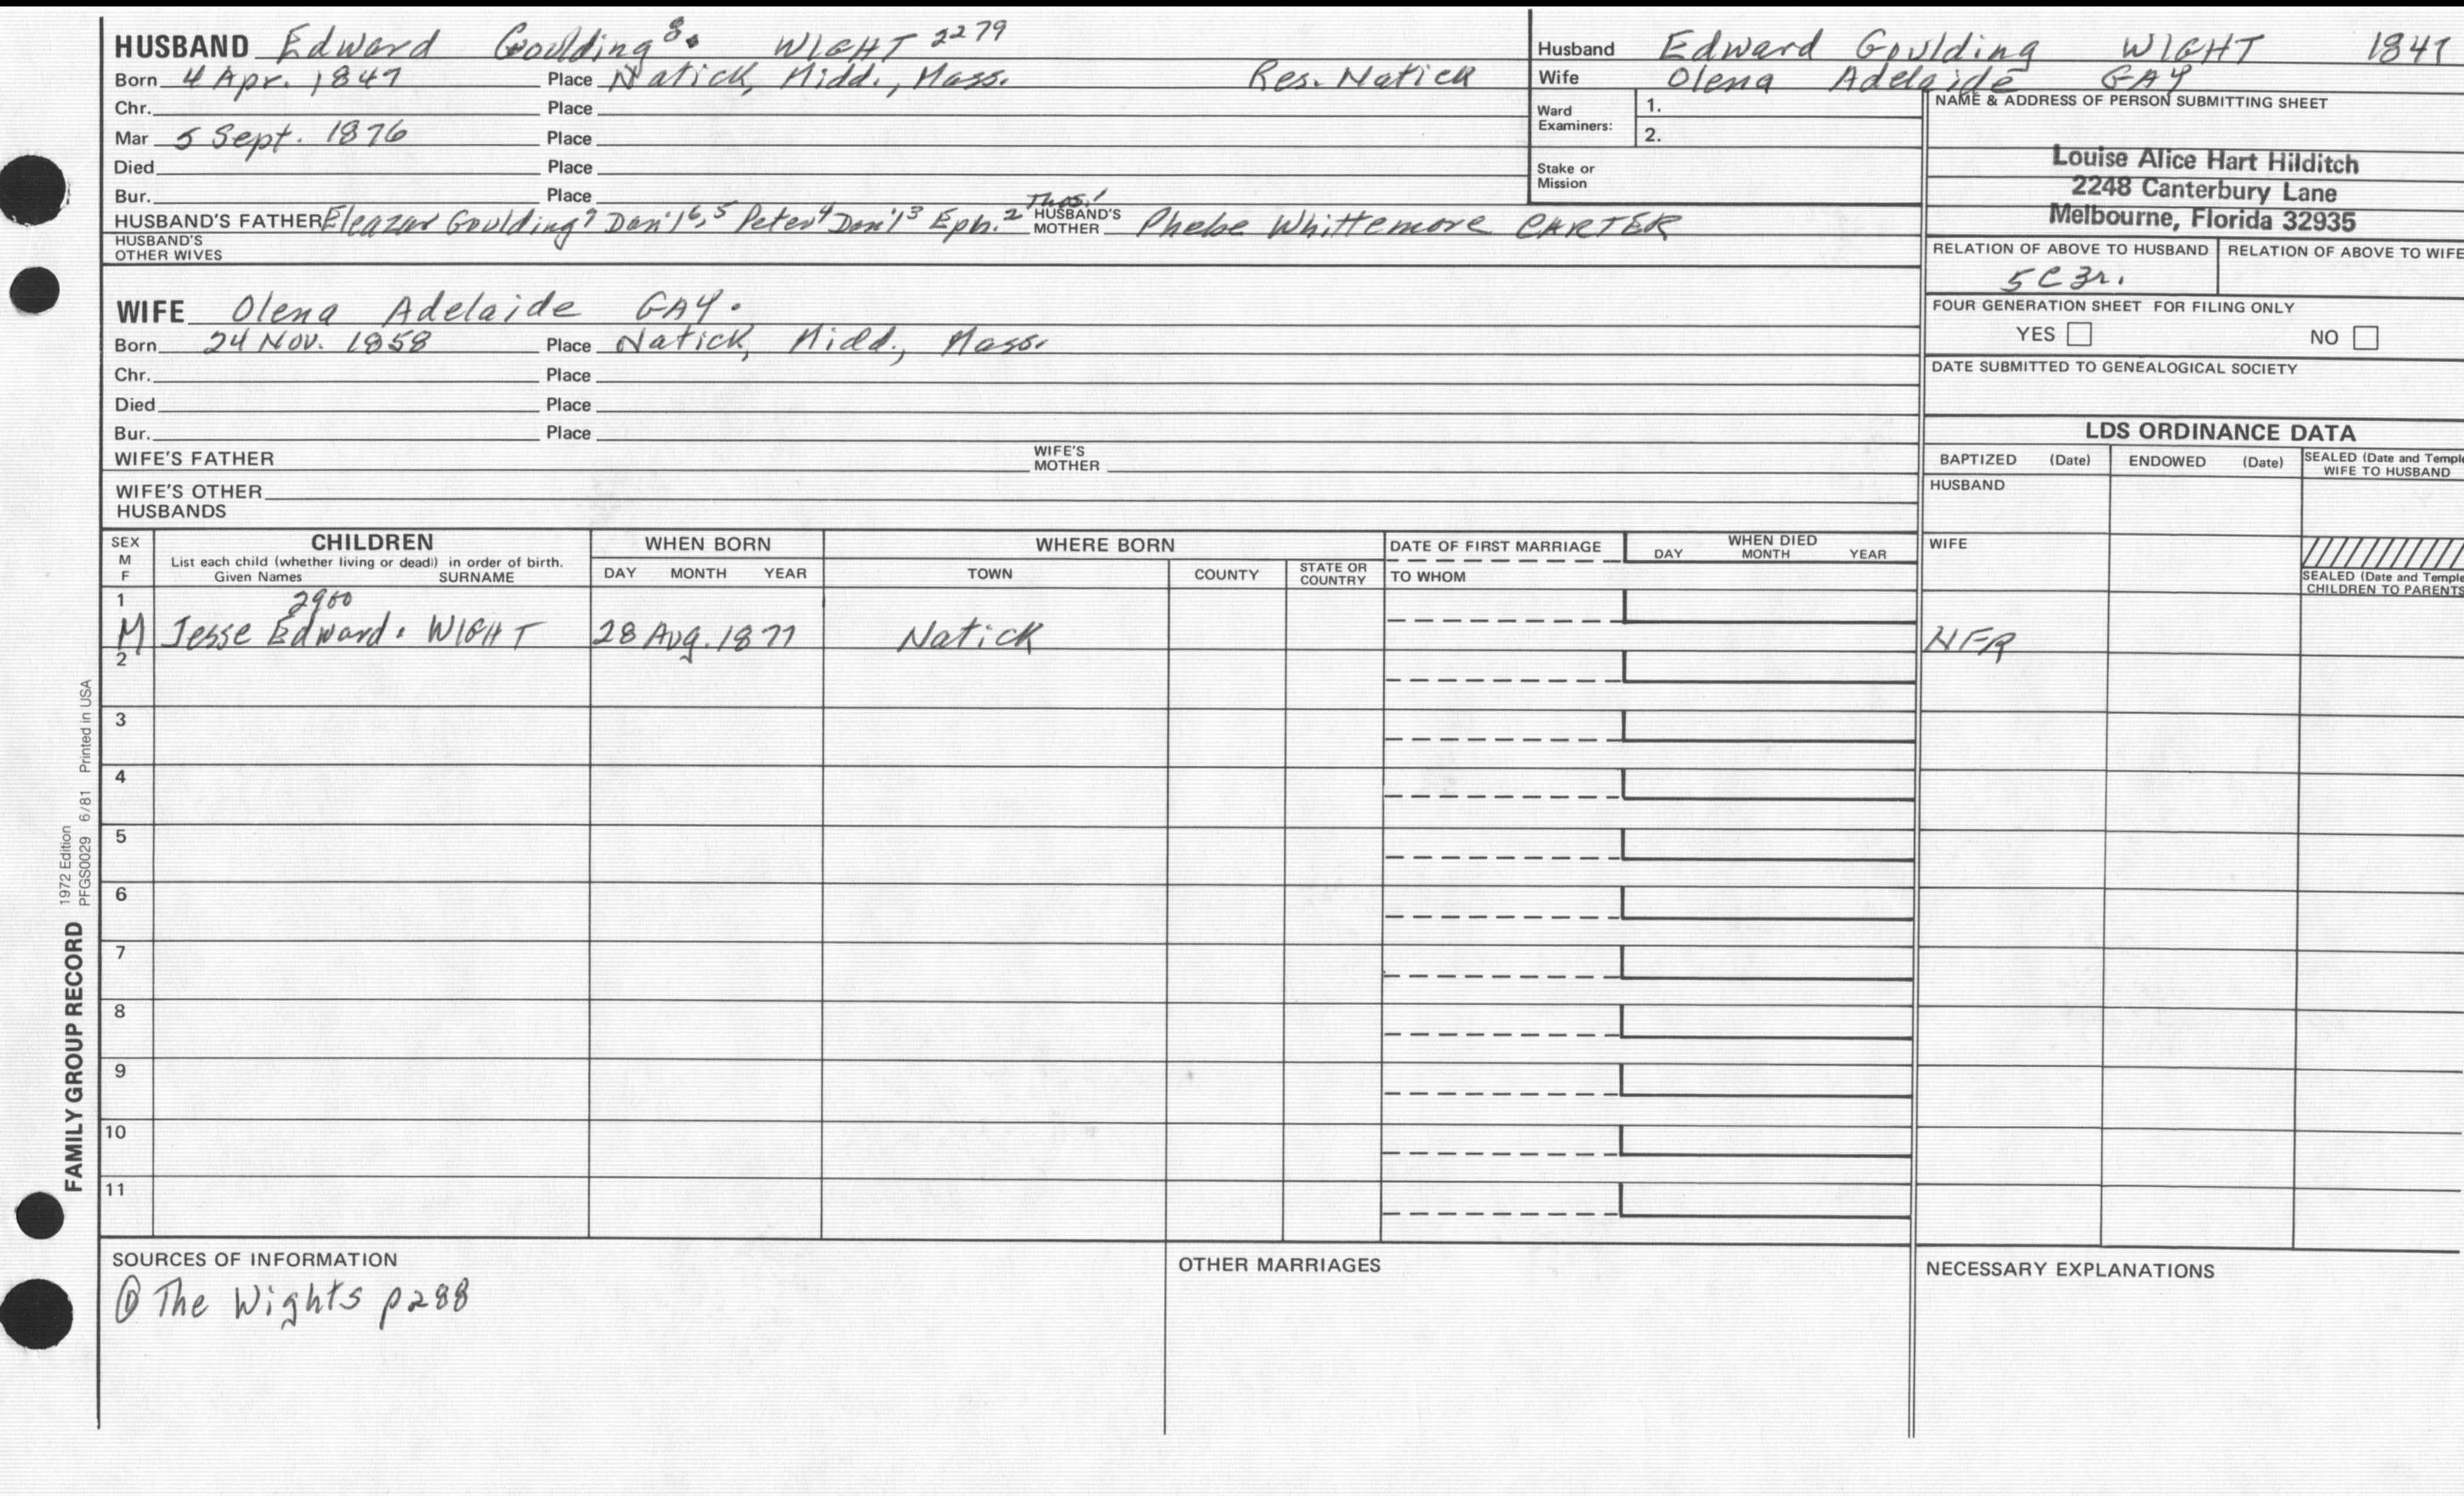 HUSBAND Edward Goulding 8. WIGHT 2279
Born 4 Apr. 1847 Place Natick, Midd., Mass. Res. Natick
Chr. Place
Mar 5 Sept. 1876 Place
Died Place
Bur. Place
HUSBAND'S FATHER Eleazar Goulding7 Dan'l6,5 Peter4 Dan'l3 Eph.2 Thos.1 HUSBAND'S MOTHER Phebe Whittemore CARTER
HUSBAND'S OTHER WIVES
WIFE Olena Adelaide GAY.
Born 24 Nov. 1858 Place Natick, Midd., Mass.
Chr. Place
Died Place
Bur. Place
WIFE'S FATHER WIFE'S MOTHER
WIFE'S OTHER HUSBANDS
Husband Edward Goulding WIGHT 1847
Wife Olena Adelaide GAY
Ward Examiners: 1.
2.
Stake or Mission
NAME & ADDRESS OF PERSON SUBMITTING SHEET
Louise Alice Hart Hilditch
2248 Canterbury Lane
Melbourne, Florida 32935
RELATION OF ABOVE TO HUSBAND RELATION OF ABOVE TO WIFE
5C 3r.
FOUR GENERATION SHEET FOR FILING ONLY
YES NO
DATE SUBMITTED TO GENEALOGICAL SOCIETY
LDS ORDINANCE DATA
BAPTIZED (Date) ENDOWED (Date) SEALED (Date and Temple) WIFE TO HUSBAND
HUSBAND
WIFE
SEALED (Date and Temple) CHILDREN TO PARENTS
SEX M F
CHILDREN
List each child (whether living or dead) in order of birth.
Given Names SURNAME
WHEN BORN
DAY MONTH YEAR
WHERE BORN
TOWN COUNTY STATE OR COUNTRY
DATE OF FIRST MARRIAGE
TO WHOM
WHEN DIED
DAY MONTH YEAR
1 2900
M Jesse Edward. WIGHT 28 Aug. 1877 Natick NFR
2
3
4
5
6
7
8
9
10
11
SOURCES OF INFORMATION
① The Wights p288
OTHER MARRIAGES
NECESSARY EXPLANATIONS
FAMILY GROUP RECORD
1972 Edition
PFGS0029 6/81 Printed in USA